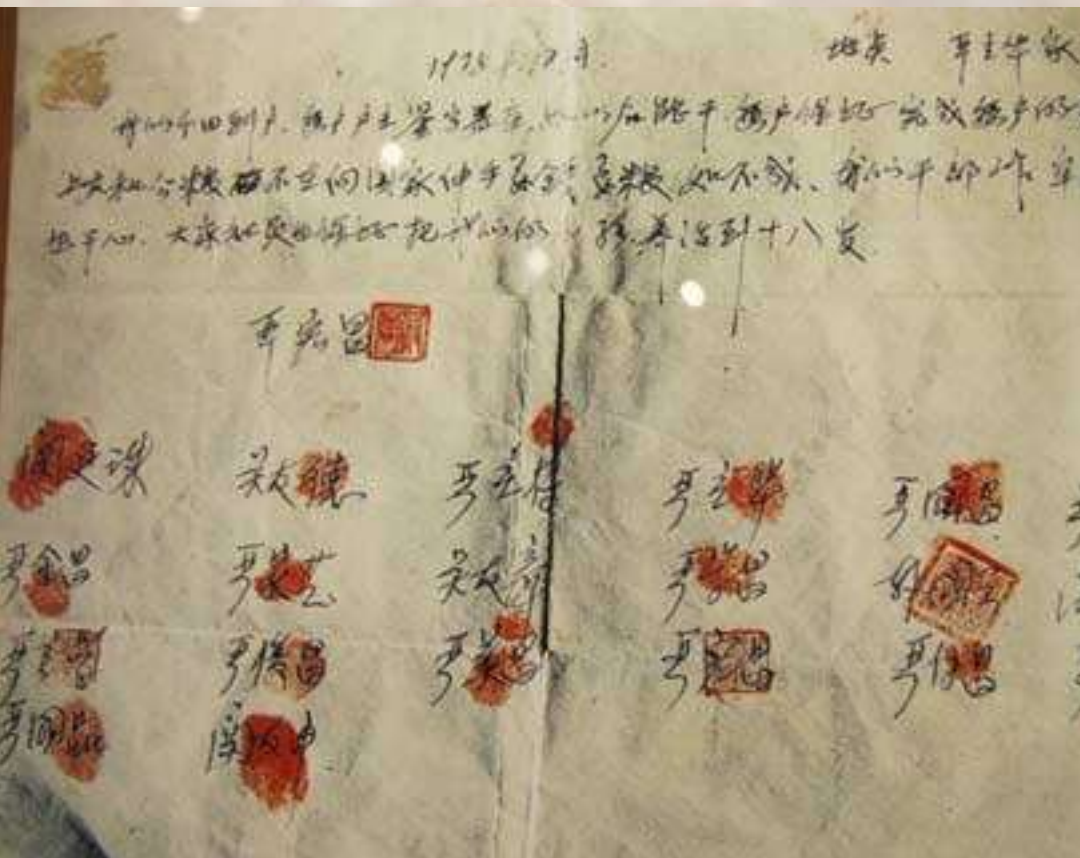 1978.12月. 地点 严立华家
我们分田到户.每户户主签字盖章.如以后能干.每户保证完成每户的
上交和公粮不在向国家伸手要钱要粮如不成、我们干部作牢
也干心.大家社员也保证把我们的小孩养活到十八岁
严宏昌
关友德 严立符 严立华 严国昌
严金昌 严家芝 关友章 严学昌
严俊昌 严美昌 严宏昌 严付昌
严国品